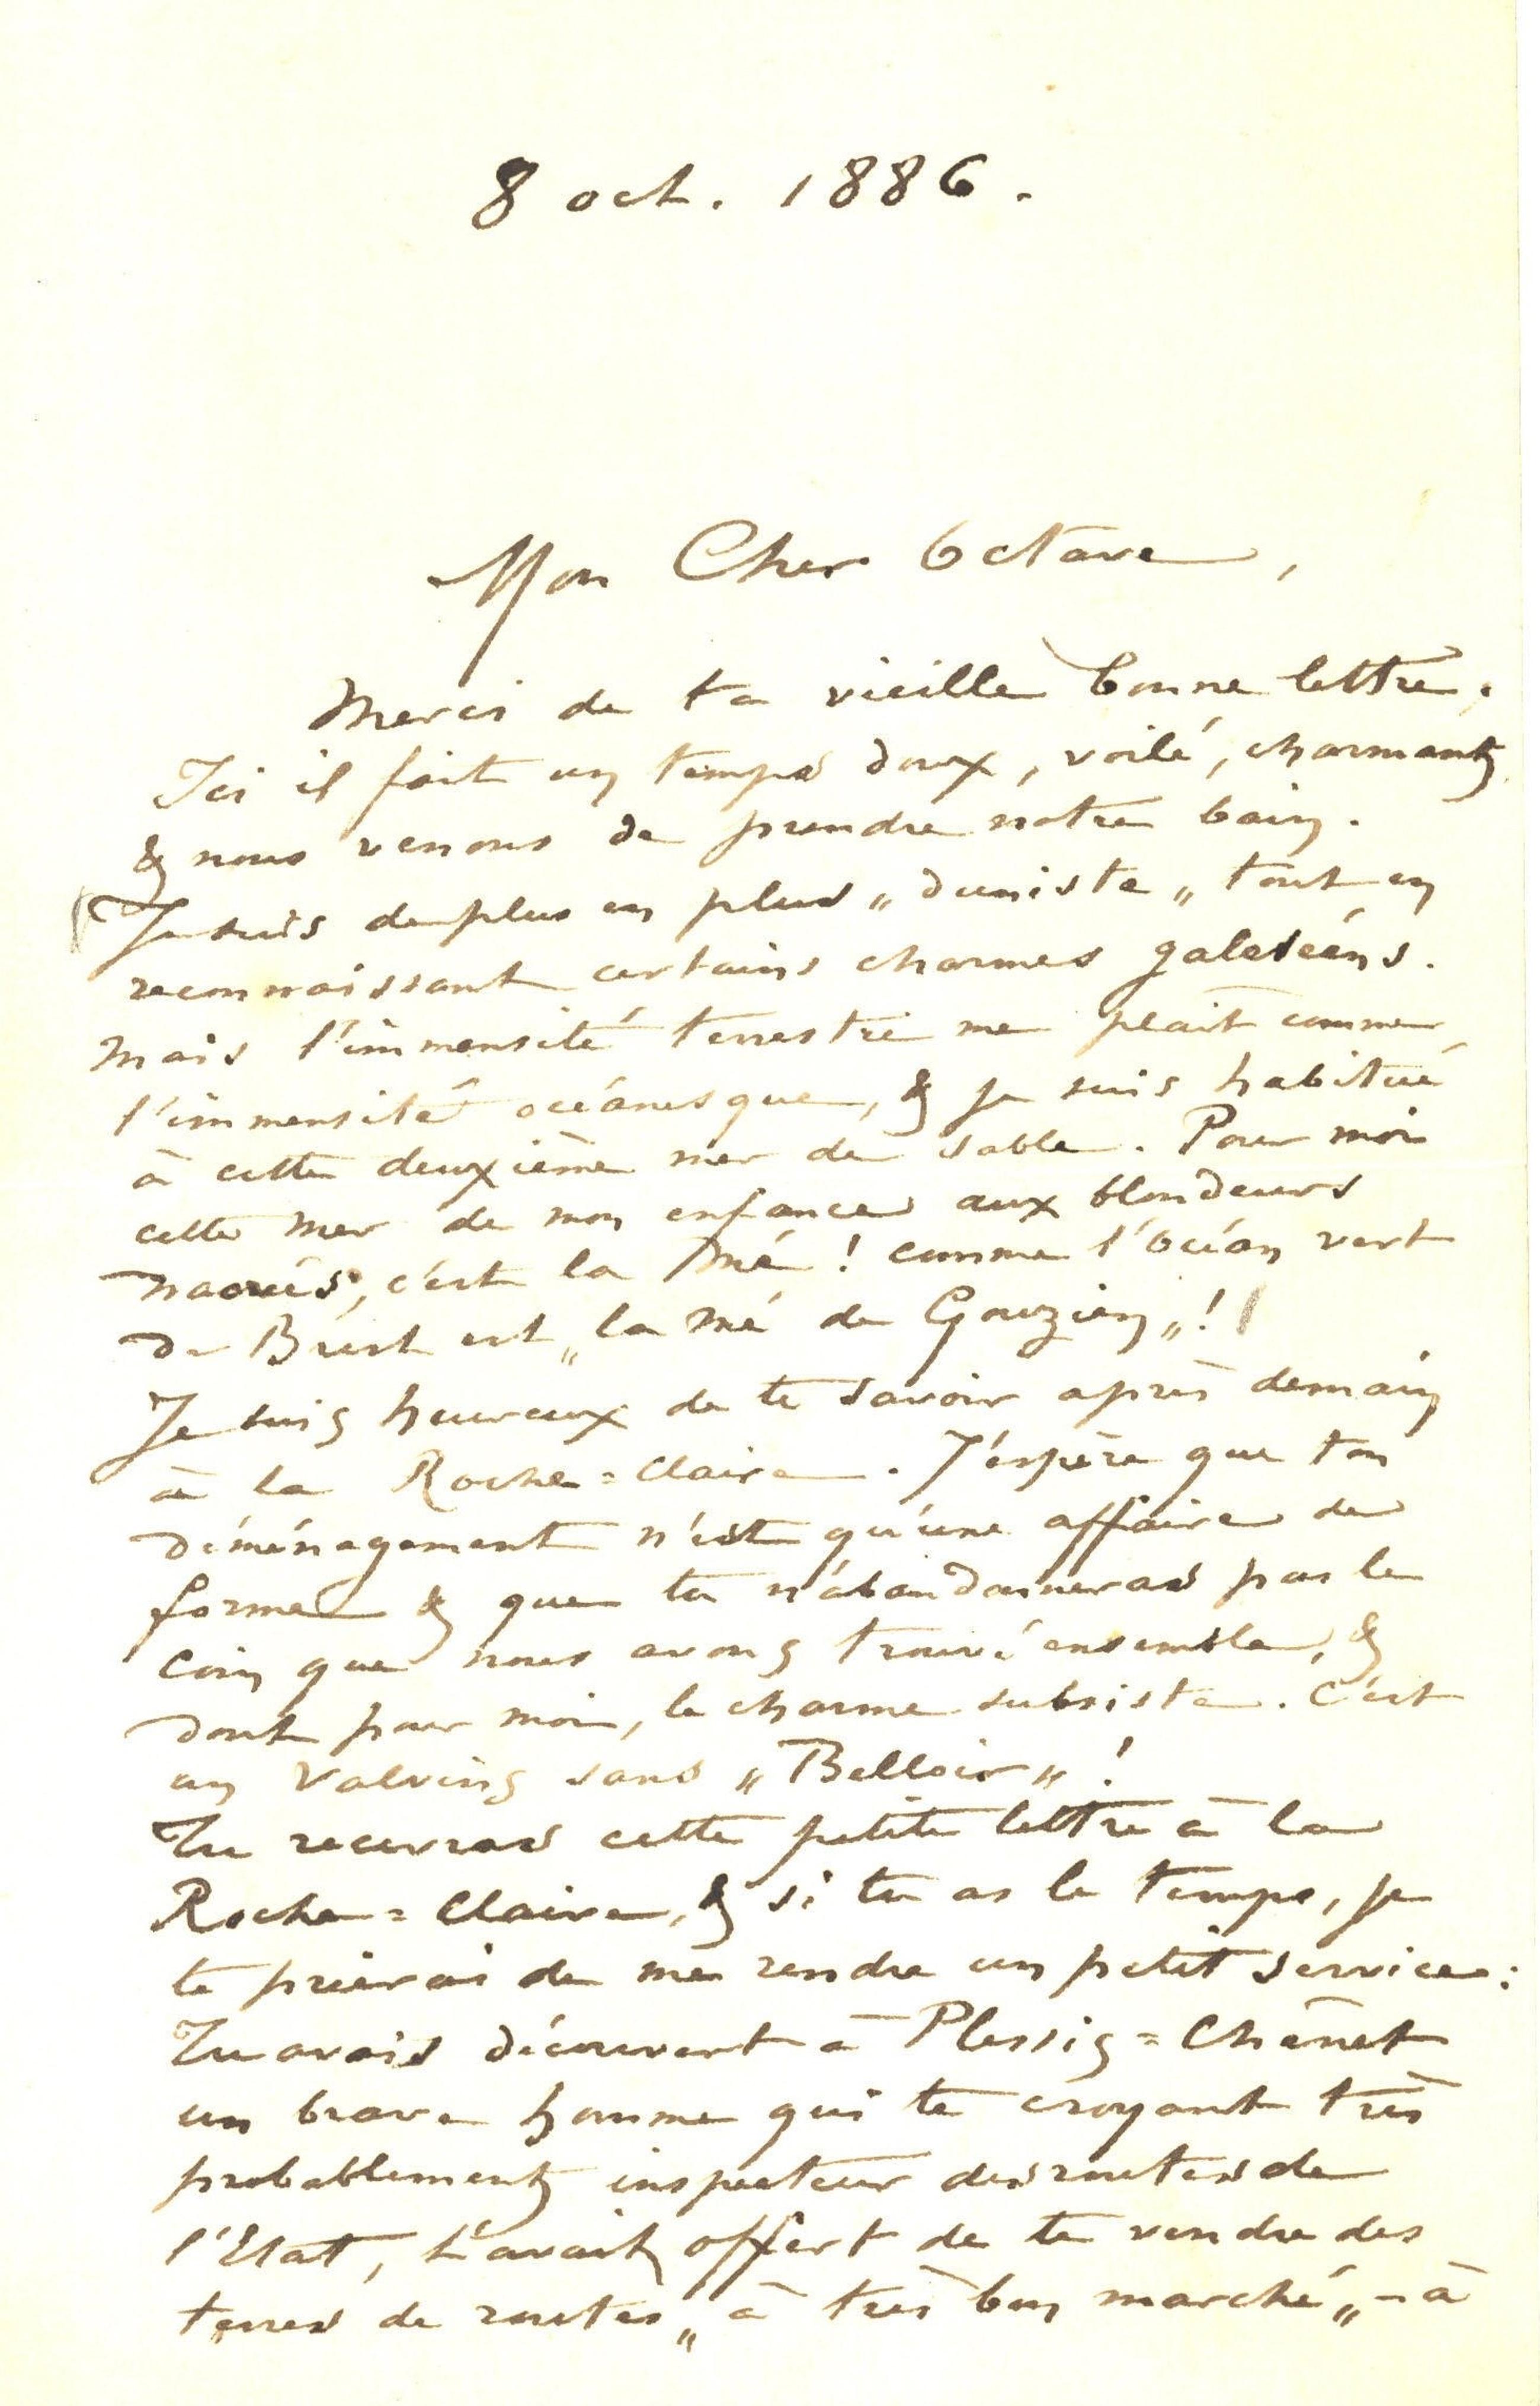 8 oct. 1886.
Mon Cher Octave,
Merci de ta vieille bonne lettre.
Ici il fait un temps doux, voilé, charmant,
& nous venons de prendre notre bain.
Je suis de plus en plus „duniste„ tout en
reconnaissant certains charmes galetséens.
Mais l'immensité terrestre me plait comme
l'immensité océanesque, & je suis habitué
à cette deuxième mer de sable. Pour moi
cette mer de mon enfance aux blondeurs
nacrées, c'est la Mé ! comme l'Océan vert
de Brest est „la Mé de Gouzien„ !
Je suis heureux de te savoir après demain
à la Roche=Claire. J'espère que ton
déménagement n'est qu'une affaire de
forme & que tu n'abandonneras pas le
coin que nous avons trouvé ensemble, &
dont pour moi, le charme subsiste. C'est
un Valvins sans „Belloir„ !
Tu recevras cette petite lettre à la
Roche=Claire, & si tu as le temps, je
te prierai de me rendre un petit service :
Tu avais découvert à Plessis=Chênet
un brave homme qui te croyant très
probablement inspecteur des routes de
l'Etat, t'avait offert de te vendre des
terres de routes „à très bon marché„ - à